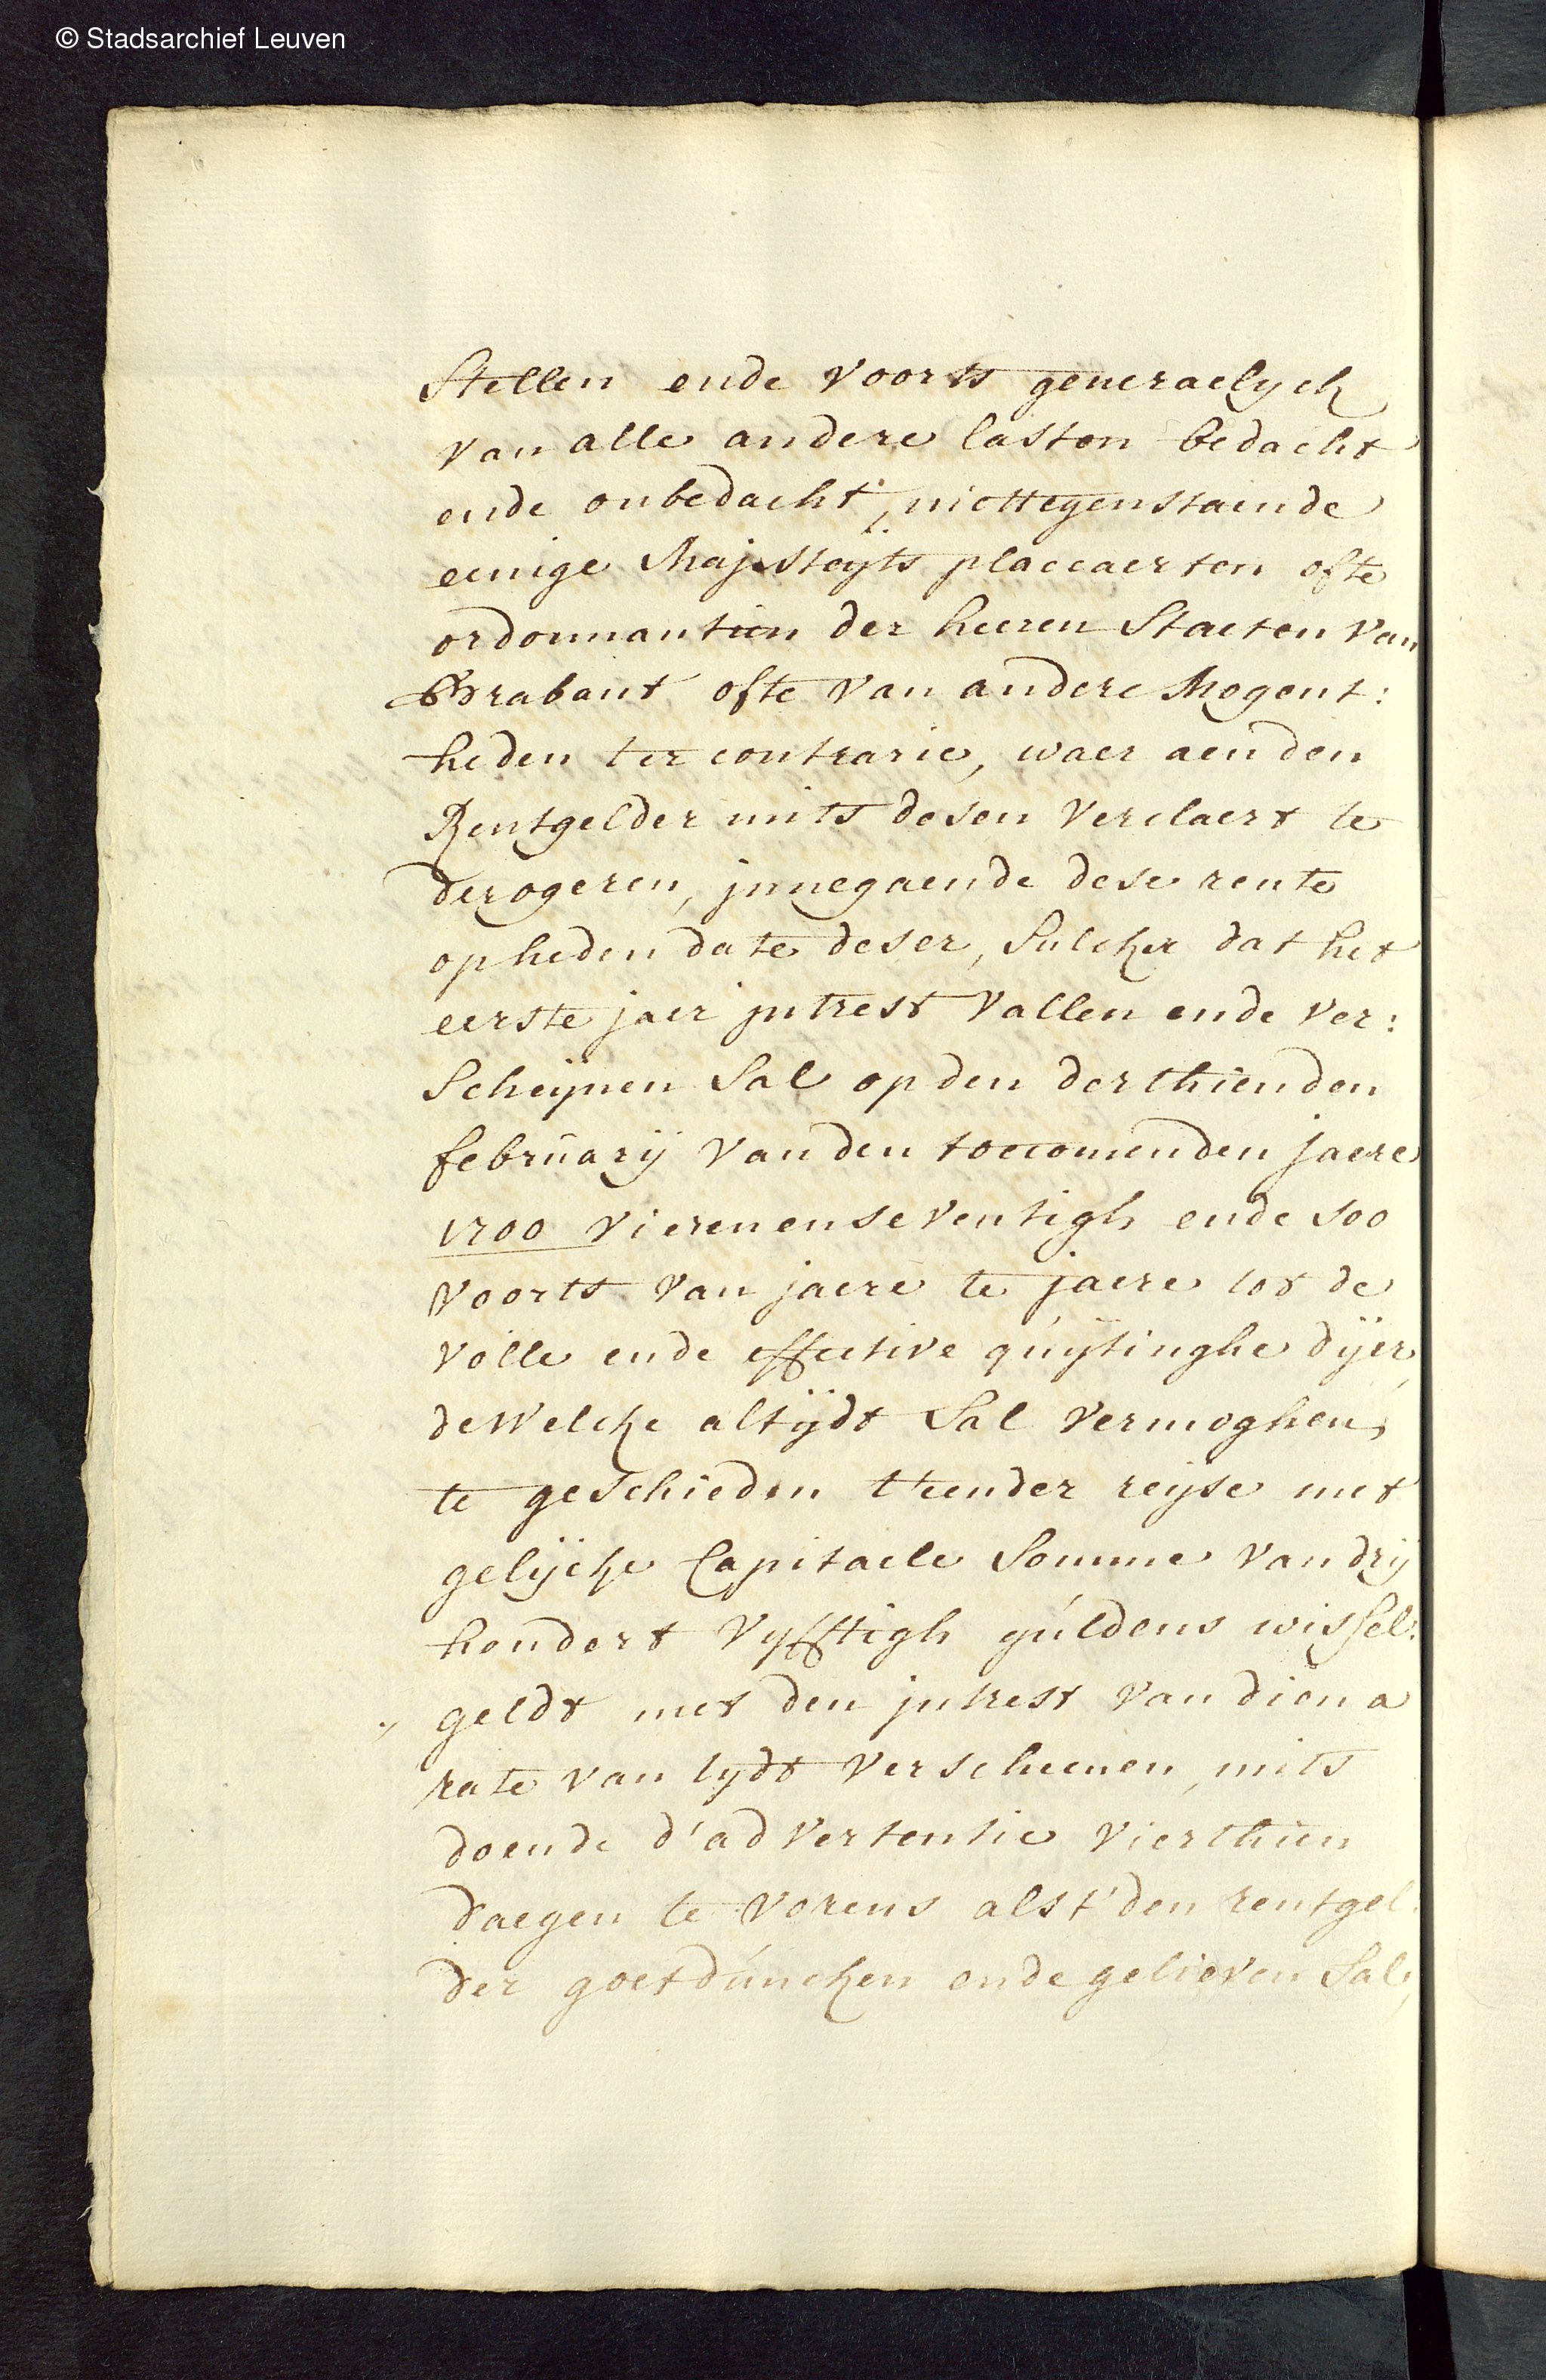 © Stadsarchief Leuven
Stellen ende voorts generaelyck
van alle andere lasten bedacht
ende onbedacht, niettegenstaende
eenige Majesteyts placcaerten ofte
ordonnantien der heeren Staeten van
Brabant ofte van andere Mogent:
heden ter contrarie, waer aen den
Rentgelder mits desen verclaert te
derogeren, jnnegaende dese rente
op heden date deser, sulckx dat het
eerste jaer jntrest vallen ende ver:
scheynen sal op den derthienden
februarij van den toecomenden jaere
1700 vierenenseventigh ende soo
voorts van jaere te jaere tot de
volle ende effective quytinghe dyer,
dewelcke altydt sal vermoghen
te geschieden t'eender reyse met
gelycke Capitaele Somme van dry
hondert vyfftigh guldens wissel:
geldt met den jntrest van dien a
rate van tydt verscheenen, mits
doende d'advertentie vierthien
daegen te vorens alst' den rentgel:
der goetduncken ende gelieven sal,